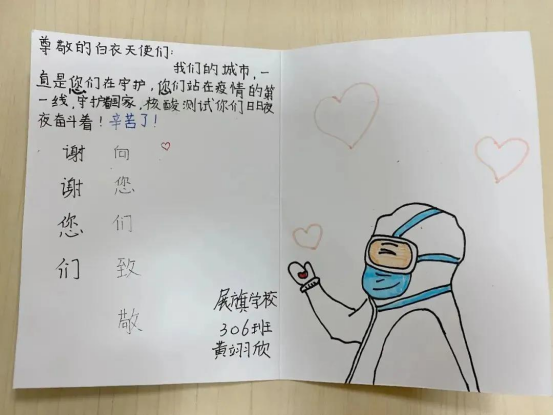 尊敬的白衣天使们:
我们的城市,一
直是您们在守护,您们站在疫情的第
一线,守护国家,核酸测试你们日日夜
夜奋斗着!辛苦了!
谢谢您们
向您们致敬
展旗学校
306班
黄翊欣